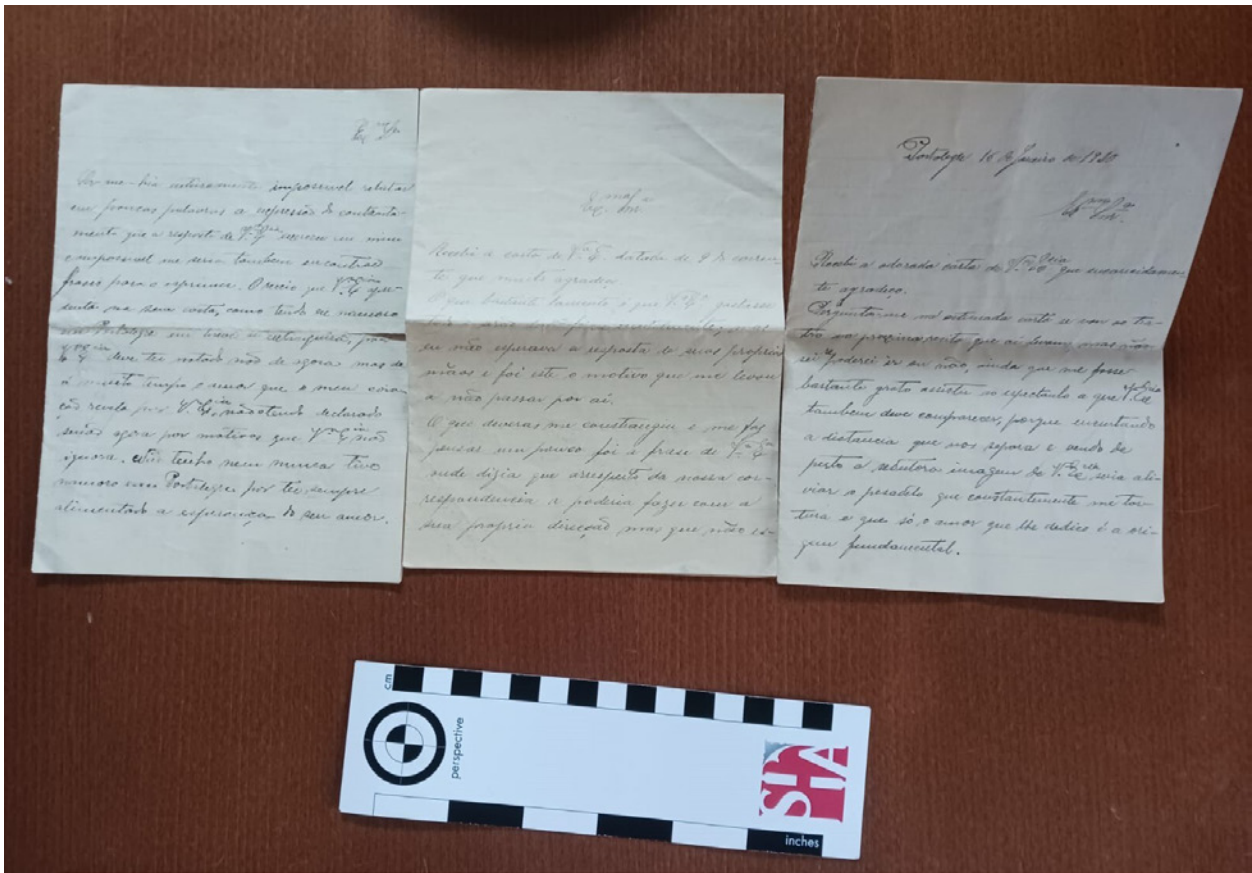 Exma Sra
Ser-me-hia inteiramente impossivel relatar
em poucas palavras a expressão de contenta-
mento que a resposta de V. Excia em mim
e impossivel me seria tambem encontrar
frases para o exprimir. O receio que V. Excia apre-
senta na sua carta, como tendo eu namoro
em Portalegre
V. Excia deve ter notado não de agora mas de
á muito tempo o amor que o meu cora-
ção revela por V. Excia, não o tendo declarado
senão agora por motivos que V. Excia não
ignora. Não tenho nem nunca tive
namoro em Portalegre por ter sempre
alimentado a esperança do seu amor.
Exma Sra
Recebi a carta de V. Exa datada de 9 do corren-
te que muito agradeço.
O que bastante lamento é que V. Exa
eu não esperava a resposta de suas proprias
mãos e foi este o motivo que me levou
a não passar por aí.
O que deveras me constrangeu e me faz
pensar um pouco foi a frase de V. Exa
onde dizia que arrespeito da nossa cor-
respondencia a poderia fazer com a
sua propria direcção mas que não es-
Portalegre 16 de Janeiro de 1920
Exma Sra
Recebi a adorada carta de V. Excia que encarecidamen-
te agradeço.
Perguntar-me na estimada carta se vou ao tea-
tro na proxima noite que aí
sei poderei ir ou não, ainda que me fosse
bastante grato assistir ao espectaculo a que V. Excia
tambem deve comparecer, porque encurtando
a distancia que nos separa e vendo de
perto a sedutora imagem de V. Excia, seria ali-
viar o pesadelo que constantemente me tor-
tura e que só, o amor que lhe dedico é a ori-
gem fundamental.
cm
perspective
inches